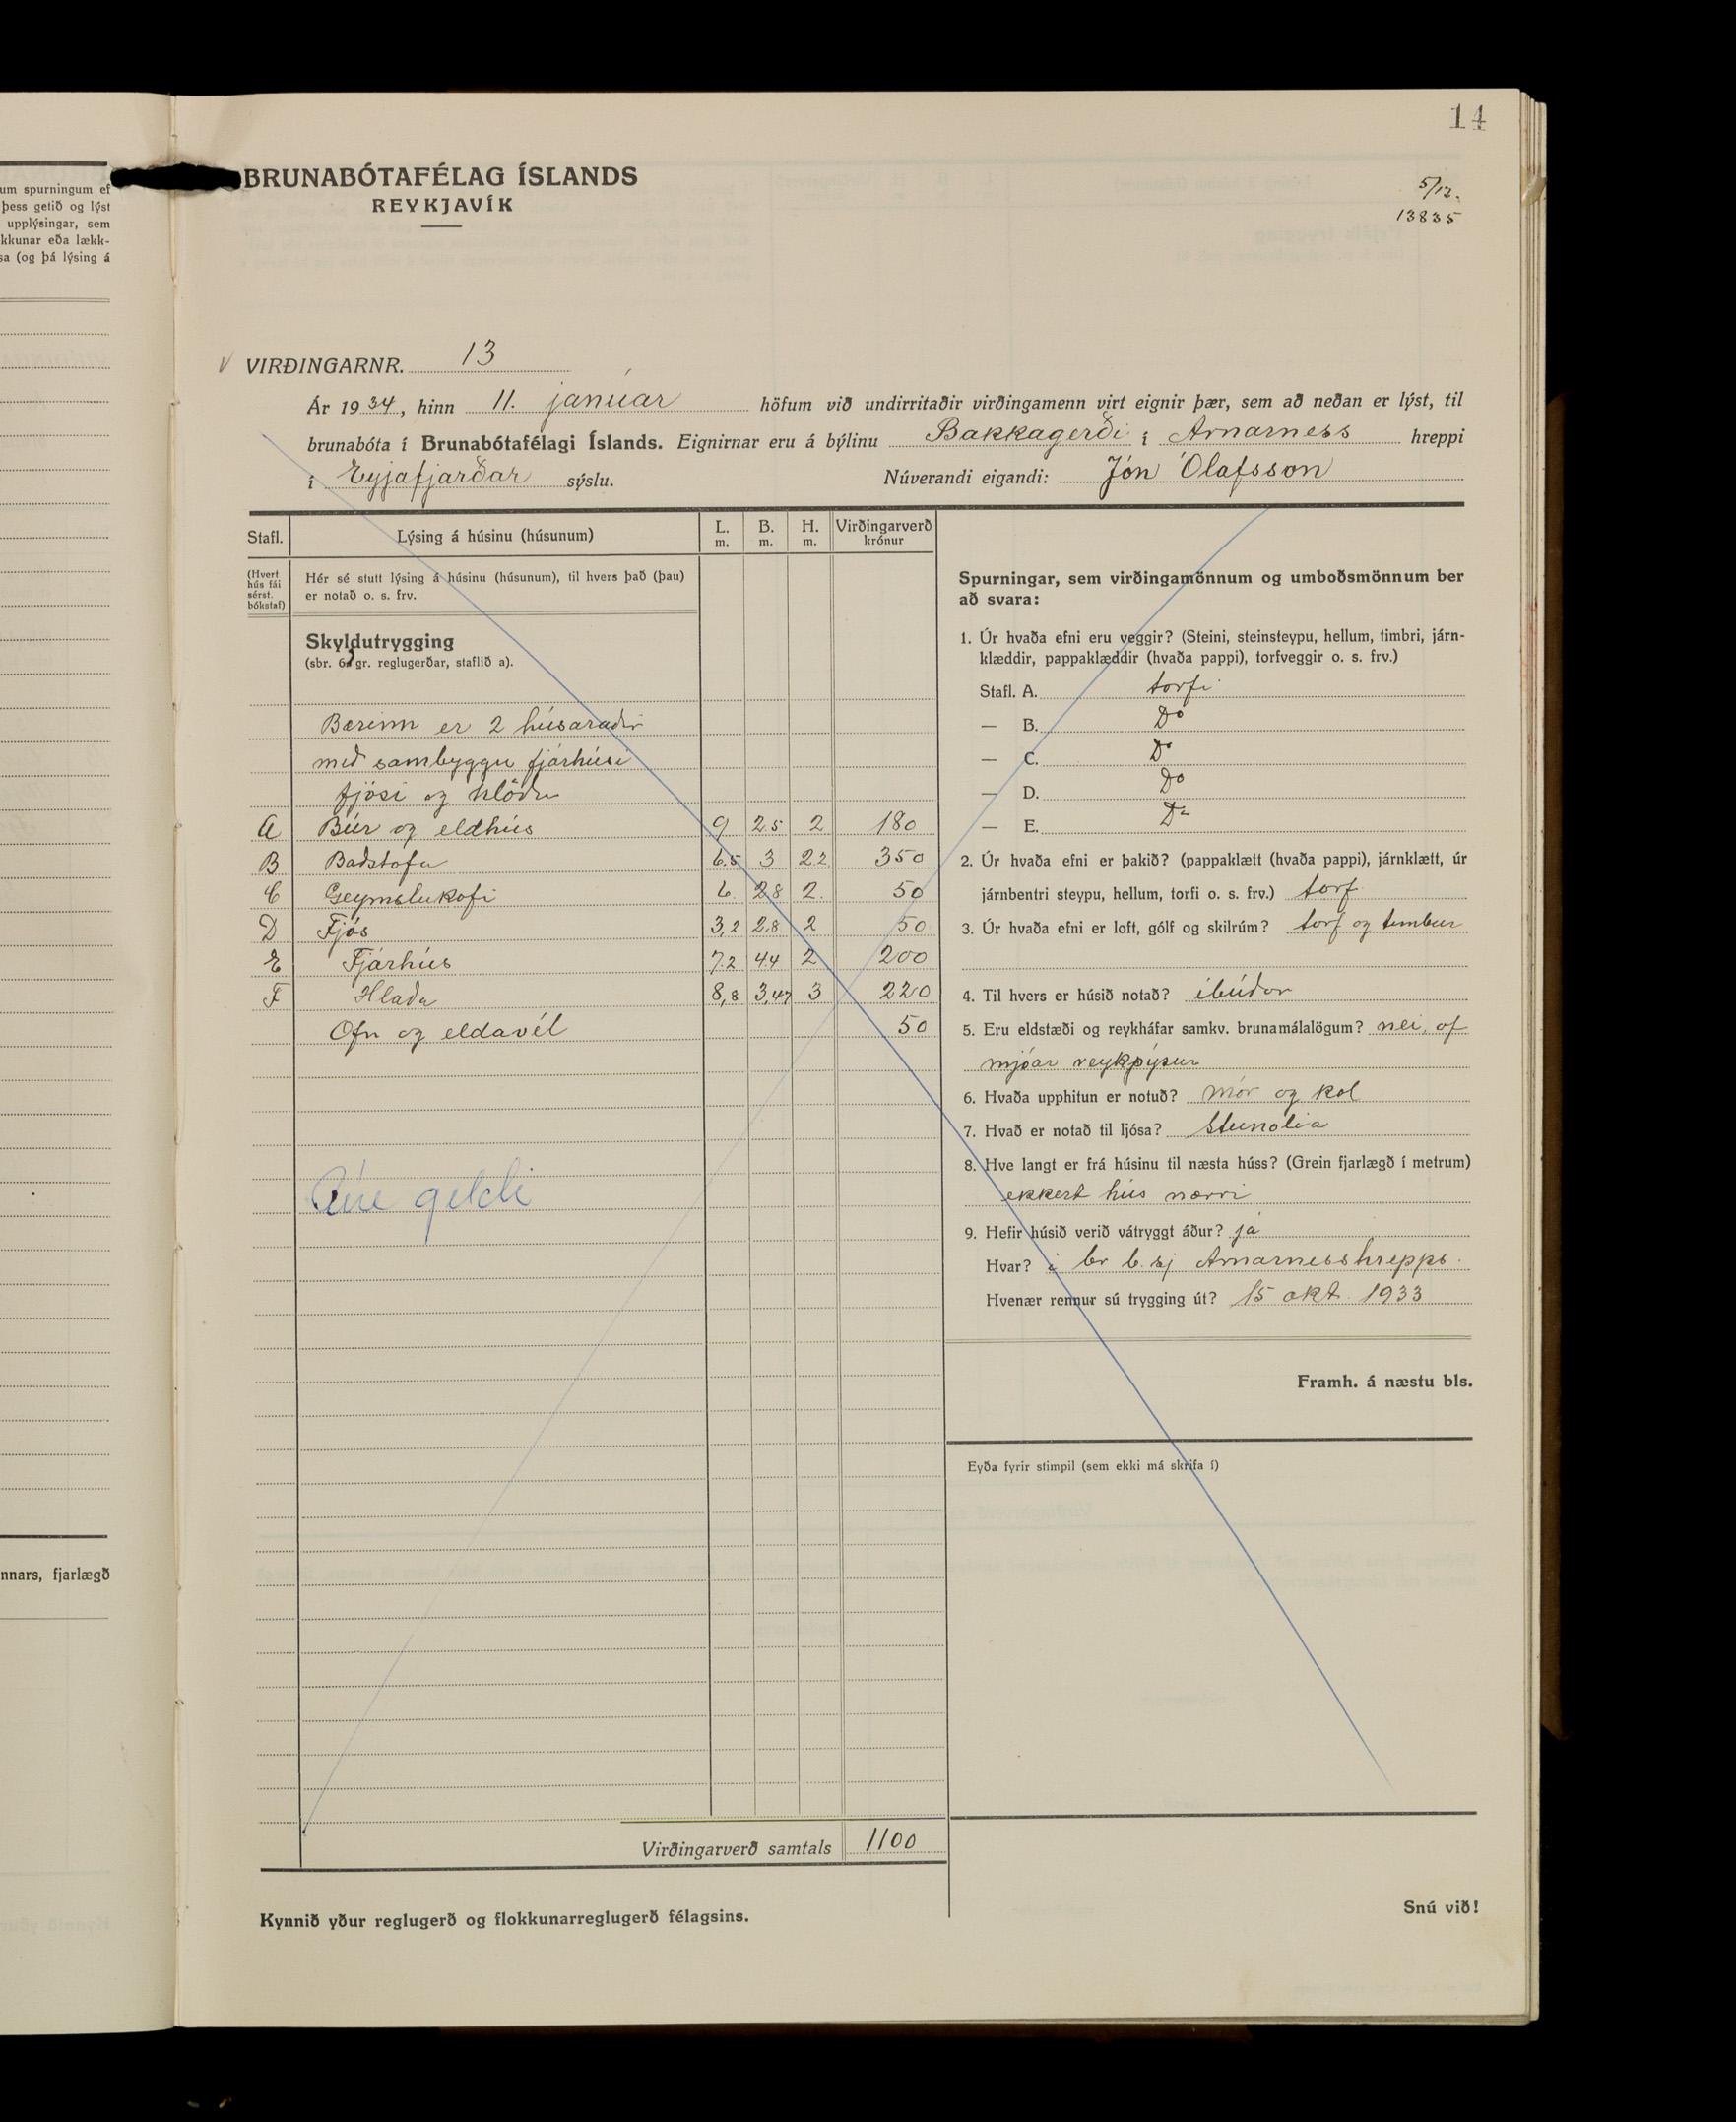 14
um spurningum ef
þess getið og lýst
upplýsingar, sem
kkunar eða lækk-
sa (og þá lýsing á
nnars, fjarlægð
BRUNABÓTAFÉLAG ÍSLANDS
REYKJAVÍK
5/12.
13835
VIRÐINGARNR. 13
Ár 1934, hinn 11. janúar höfum við undirritaðir virðingamenn virt eignir þær, sem að neðan er lýst, til
brunabóta í Brunabótafélagi Íslands. Eignirnar eru á býlinu Bakkagerði í Arnarness hreppi
í Eyjafjarðar sýslu. Núverandi eigandi: Jón Ólafsson
Stafl. Lýsing á húsinu (húsunum) L. m. B. m. H. m. Virðingarverð krónur
(Hvert hús fái sérst. bókstaf)
Hér sé stutt lýsing á húsinu (húsunum), til hvers það (þau)
er notað o. s. frv.
Skyldutrygging
(sbr. 6 gr. reglugerðar, staflið a).
Bærinn er 2 húsaraðir
með sambyggðu fjárhúsi
fjósi og hlöðu
A Búr og eldhús 9 2.5 2 180
B Baðstofa 6.5 3 2.2 350
C Geymslukofi 6. 2.8 2. 50
D Fjós 3,2 2.8 2 50
E Fjárhús 7.2 4.4 2 200
F Hlaða 8,8 3,47 3 220
Ofn og eldavél 50
gildi
Virðingarverð samtals 1100
Kynnið yður reglugerð og flokkunarreglugerð félagsins.
Spurningar, sem virðingamönnum og umboðsmönnum ber
að svara:
1. Úr hvaða efni eru veggir? (Steini, steinsteypu, hellum, timbri, járn-
klæddir, pappaklæddir (hvaða pappi), torfveggir o. s. frv.)
Stafl. A. torfi
— B. Do
— C. Do
— D. Do
— E. Do
2. Úr hvaða efni er þakið? (pappaklætt (hvaða pappi), járnklætt, úr
járnbentri steypu, hellum, torfi o. s. frv.) torf
3. Úr hvaða efni er loft, gólf og skilrúm? torf og timbur
4. Til hvers er húsið notað? íbúðar
5. Eru eldstæði og reykháfar samkv. brunamálalögum? nei, of
mjóar reykpípur
6. Hvaða upphitun er notuð? mór og kol
7. Hvað er notað til ljósa? Steinolía
8. Hve langt er frá húsinu til næsta húss? (Grein fjarlægð í metrum)
ekkert hús nærri
9. Hefir húsið verið vátryggt áður? já
Hvar? í br b. sj Arnarnesshrepps.
Hvenær rennur sú trygging út? 15 okt. 1933
Framh. á næstu bls.
Eyða fyrir stimpil (sem ekki má skrifa í)
Snú við!